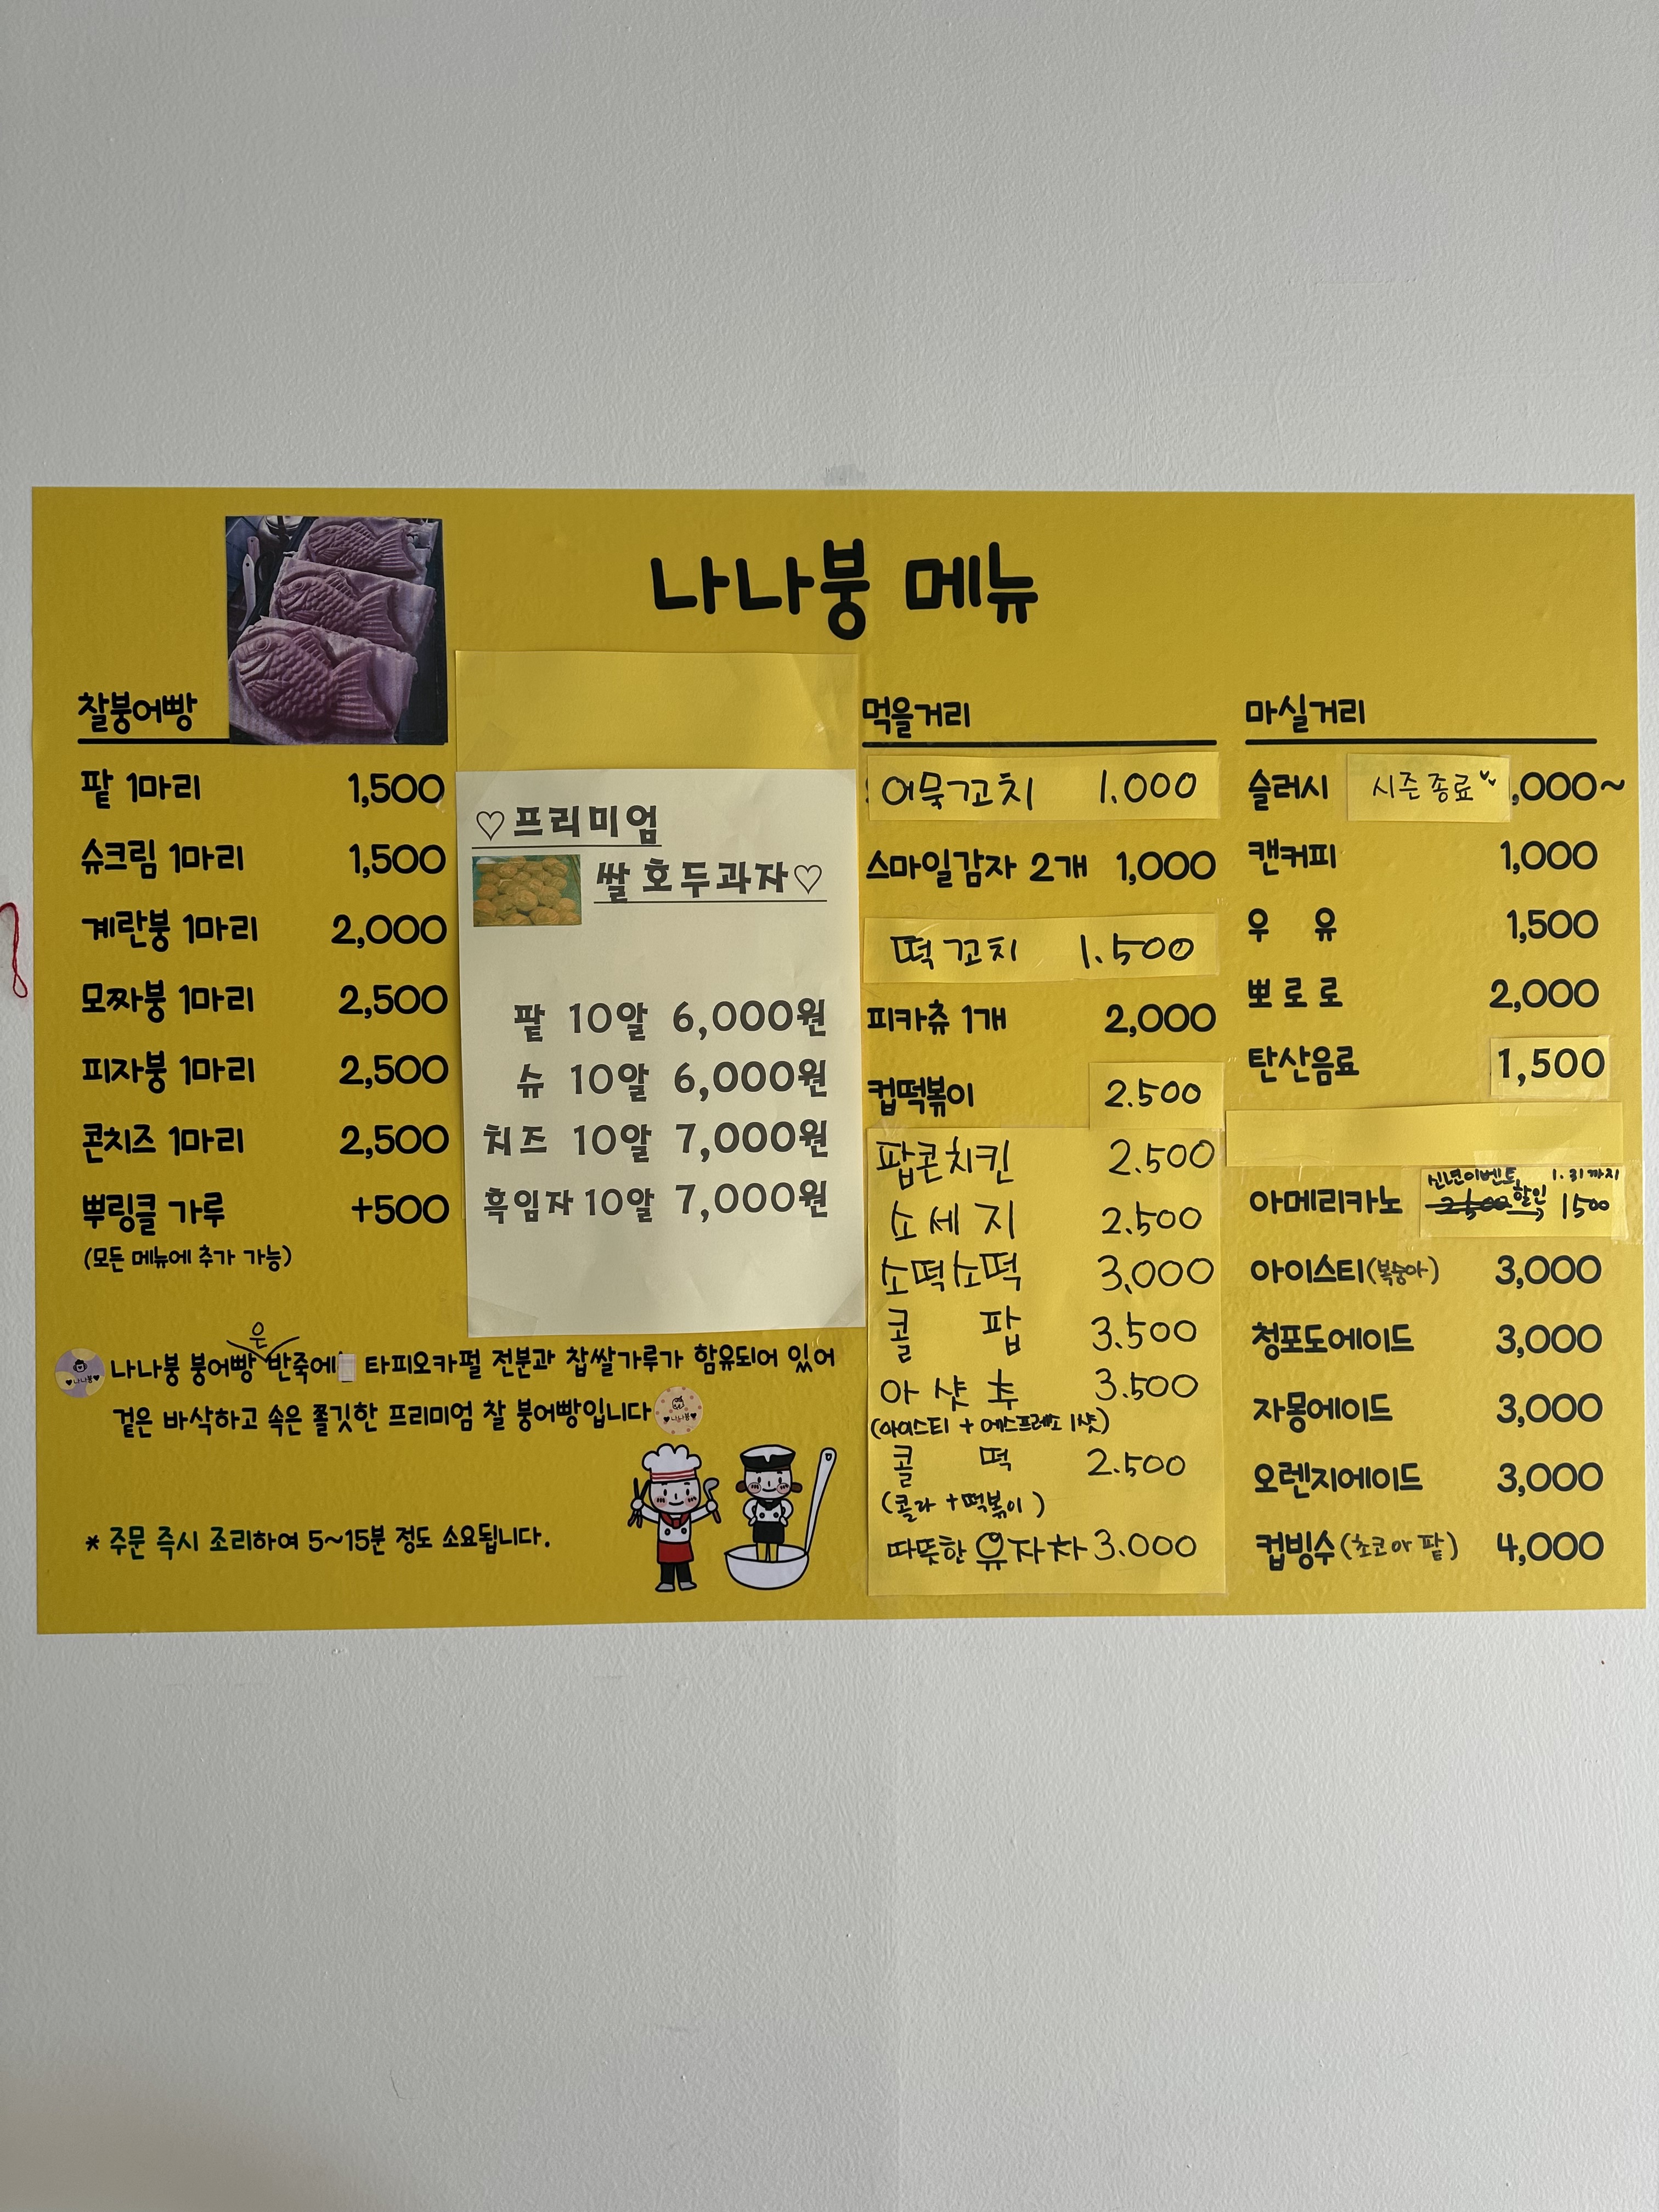 나나붕 메뉴
찰붕어빵
팥 1마리 1,500
슈크림 1마리 1,500
계란붕 1마리 2,000
모짜붕 1마리 2,500
피자붕 1마리 2,500
콘치즈 1마리 2,500
뿌링클 가루 +500
(모든 메뉴에 추가 가능)
♡프리미엄
쌀 호두과자♡
팥 10알 6,000원
슈 10알 6,000원
치즈 10알 7,000원
흑임자 10알 7,000원
은
나나붕 붕어빵 반죽에 타피오카펄 전분과 찹쌀가루가 함유되어 있어
겉은 바삭하고 속은 쫄깃한 프리미엄 찰 붕어빵입니다
* 주문 즉시 조리하여 5~15분 정도 소요됩니다.
먹을거리
어묵꼬치 1.000
스마일감자 2개 1,000
떡꼬치 1.500
피카츄 1개 2,000
컵떡볶이 2.500
팝콘치킨 2.500
소세지 2.500
소떡소떡 3,000
콜 팝 3.500
아샷추 3.500
(아이스티 + 에스프레소 1샷)
콜 떡 2.500
(콜라 + 떡볶이)
따뜻한 유자차 3.000
마실거리
슬러시 시즌종료 ,000~
캔커피 1,000
우 유 1,500
뽀로로 2,000
탄산음료 1,500
신년이벤트 1.31까지
아메리카노 2500 할인 1500
아이스티(복숭아) 3,000
청포도에이드 3,000
자몽에이드 3,000
오렌지에이드 3,000
컵빙수(초코 or 팥) 4,000